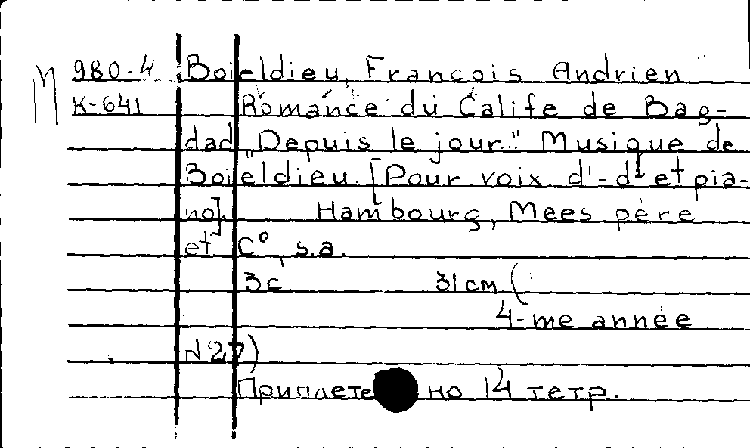 M 980-4 Boieldieu, François Andrien
K-641 Romance du Calife de Bag-
dad "Depuis le jour." Musique de
Boieldieu. [Pour voix d'-d² et pia-
no]. Hambourg, Mees père
et C°, s.a.
3c 31 см (
4-me année
N27)
Приплете но 14 тетр.